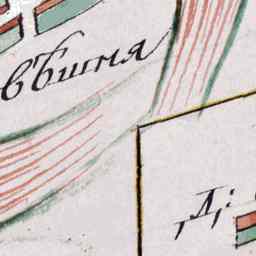 вѣшня
Д: